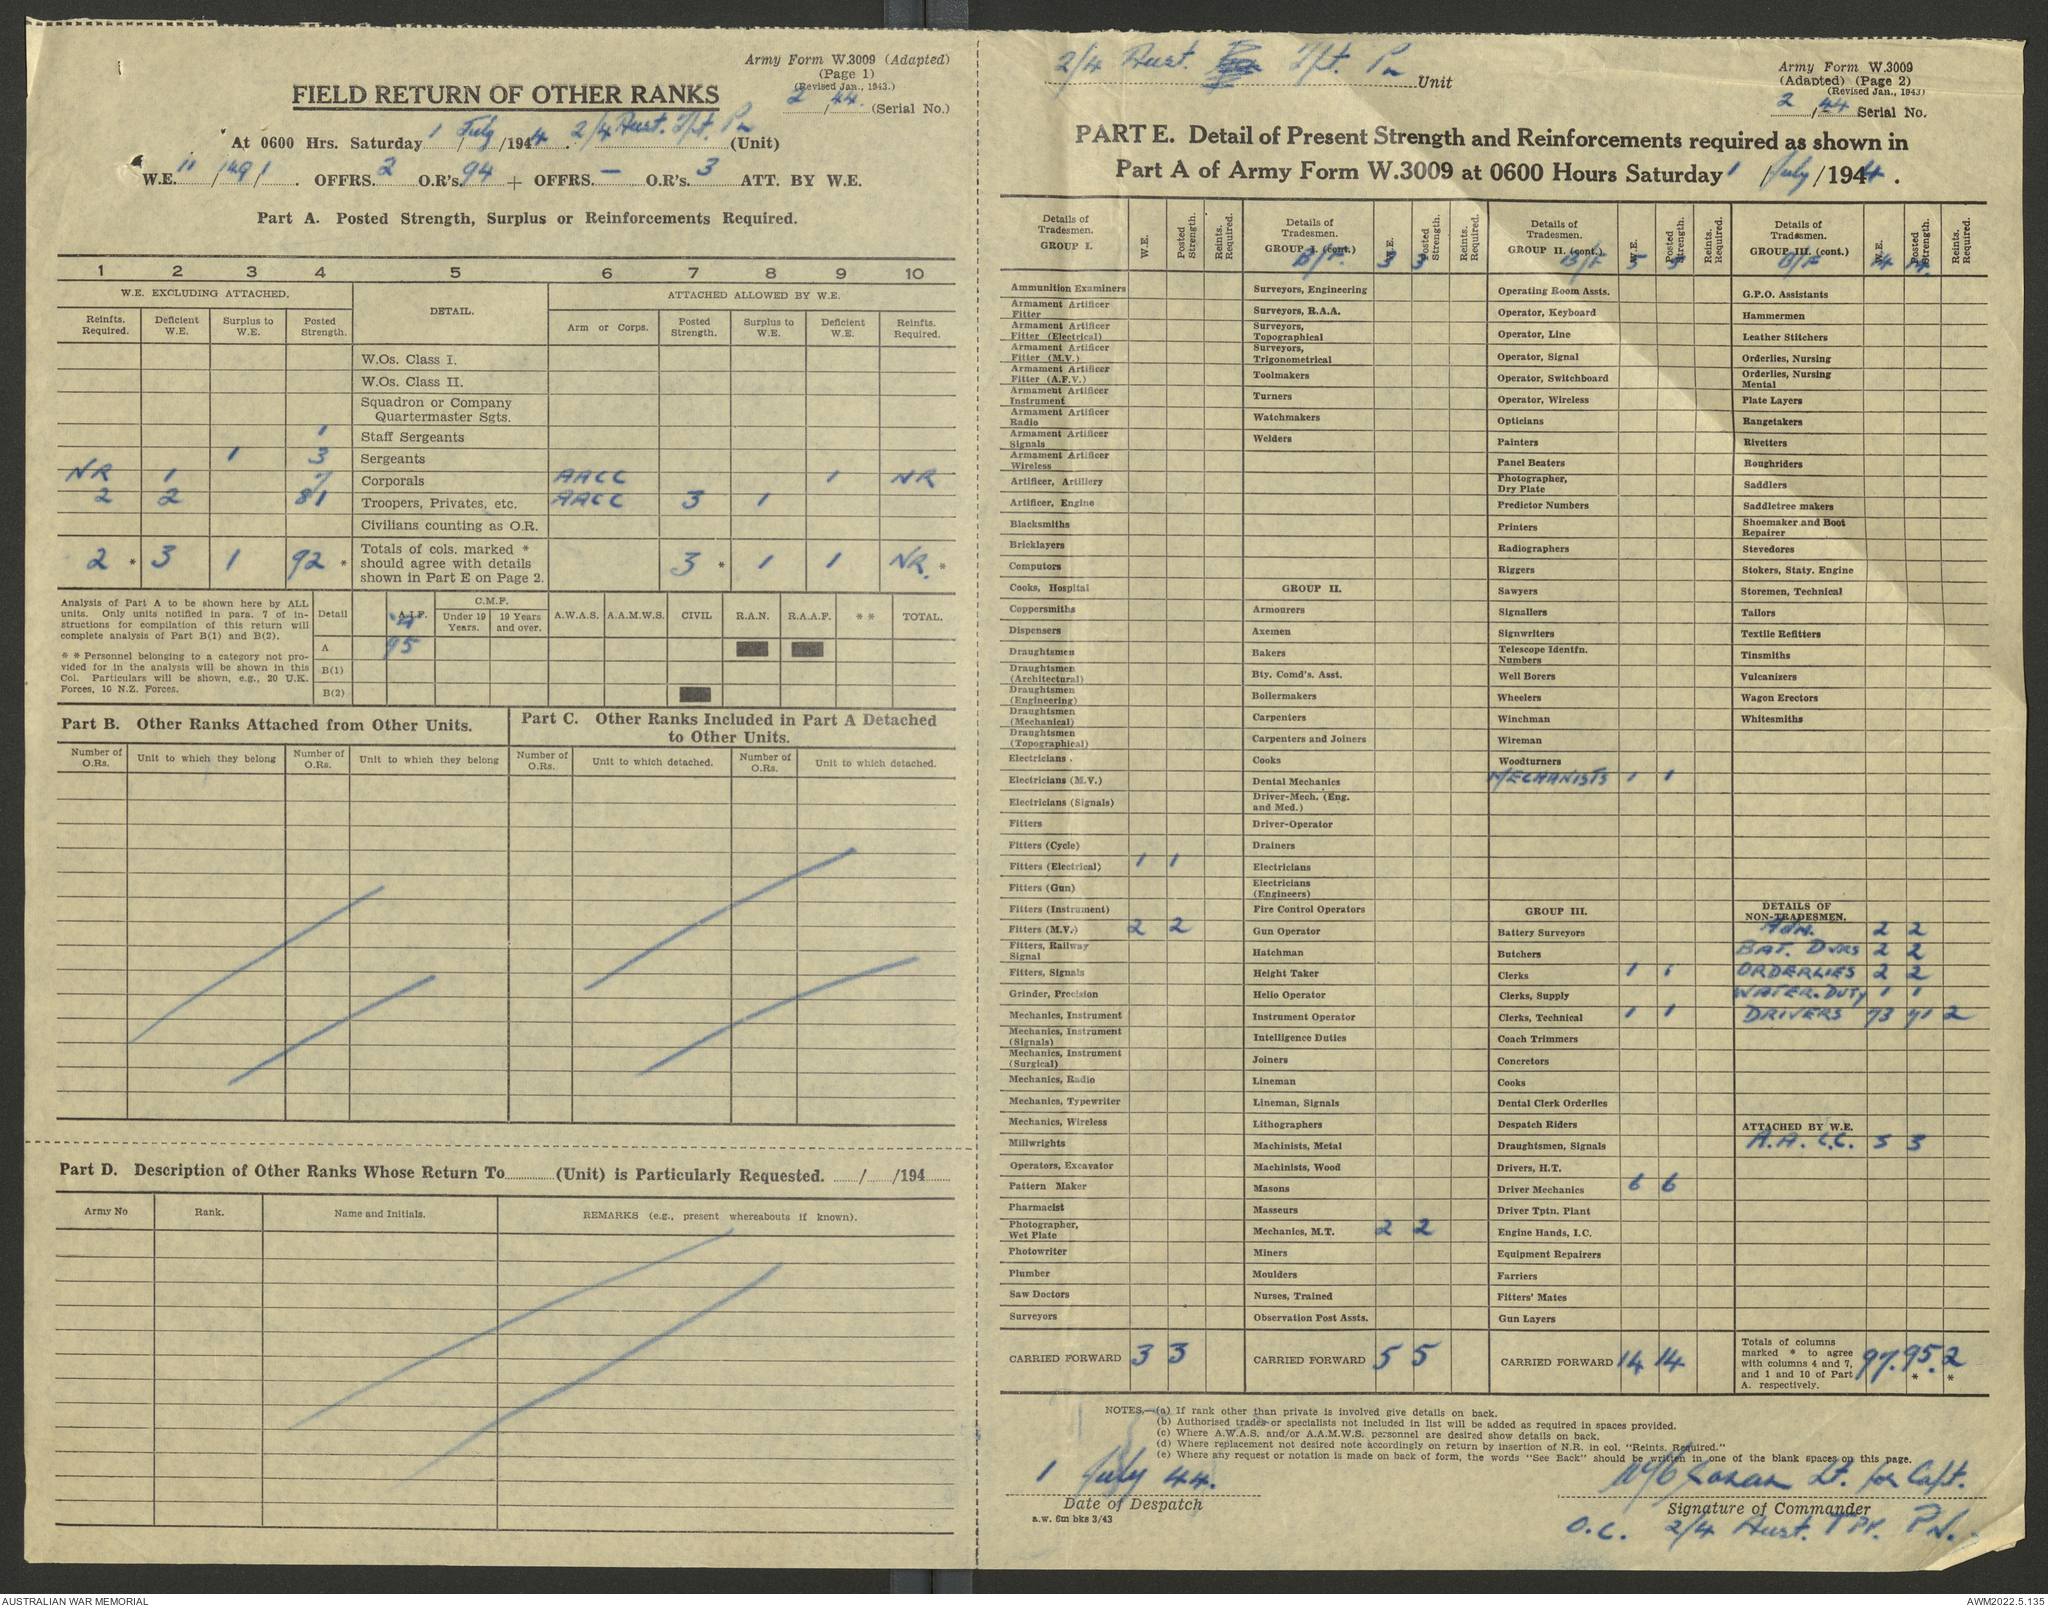 Army Form W.3009 (Adapted)
(Page 1)
(Revised Jan., 1943.)
FIELD RETURN OF OTHER RANKS
2/44. (Serial No.)
At 0600 Hrs. Saturday 1/July/1944. 2/4 Aust. T/t. Pn (Unit)
W.E. 11/149/1. OFFRS. 2 O.R's. 94 + OFFRS. — O.R's. 3 ATT. BY W.E.
Part A. Posted Strength, Surplus or Reinforcements Required.
1 2 3 4 5 6 7 8 9 10
W.E. EXCLUDING ATTACHED. DETAIL. ATTACHED ALLOWED BY W.E.
Reinfts. Required. Deficient W.E. Surplus to W.E. Posted Strength. Arm or Corps. Posted Strength. Surplus to W.E. Deficient W.E. Reinfts. Required.
W.Os. Class I.
W.Os. Class II.
Squadron or Company
Quartermaster Sgts.
1 Staff Sergeants
1 3 Sergeants
NR 1 7 Corporals AACC 1 NR
2 2 81 Troopers, Privates, etc. AACC 3 1
Civilians counting as O.R.
2 * 3 1 92 * Totals of cols. marked * should agree with details shown in Part E on Page 2. 3 * 1 1 NR. *
Analysis of Part A to be shown here by ALL
units. Only units notified in para. 7 of in-
structions for compilation of this return will
complete analysis of Part B(1) and B(2).
* * Personnel belonging to a category not pro-
vided for in the analysis will be shown in this
Col. Particulars will be shown, e.g., 20 U.K.
Forces, 10 N.Z. Forces.
Detail A.I.F. C.M.F. Under 19 Years. 19 Years and over. A.W.A.S. A.A.M.W.S. CIVIL R.A.N. R.A.A.F. * * TOTAL.
A 95
B(1)
B(2)
Part B. Other Ranks Attached from Other Units.
Number of O.Rs. Unit to which they belong Number of O.Rs. Unit to which they belong
Part C. Other Ranks Included in Part A Detached
to Other Units.
Number of O.Rs. Unit to which detached. Number of O.Rs. Unit to which detached.
Part D. Description of Other Ranks Whose Return To (Unit) is Particularly Requested. / /194
Army No Rank. Name and Initials. REMARKS (e.g., present whereabouts if known).
2/4 Aust. T/t. Pn Unit
Army Form W.3009
(Adapted) (Page 2)
(Revised Jan., 1943)
2/44 Serial No.
PART E. Detail of Present Strength and Reinforcements required as shown in
Part A of Army Form W.3009 at 0600 Hours Saturday 1/July/1944.
Details of Tradesmen. GROUP I. W.E. Posted Strength. Reints. Required.
Ammunition Examiners
Armament Artificer Fitter
Armament Artificer Fitter (Electrical)
Armament Artificer Fitter (M.V.)
Armament Artificer Fitter (A.F.V.)
Armament Artificer Instrument
Armament Artificer Radio
Armament Artificer Signals
Armament Artificer Wireless
Artificer, Artillery
Artificer, Engine
Blacksmiths
Bricklayers
Computors
Cooks, Hospital
Coppersmiths
Dispensers
Draughtsmen
Draughtsmen (Architectural)
Draughtsmen (Engineering)
Draughtsmen (Mechanical)
Draughtsmen (Topographical)
Electricians .
Electricians (M.V.)
Electricians (Signals)
Fitters
Fitters (Cycle)
Fitters (Electrical) 1 1
Fitters (Gun)
Fitters (Instrument)
Fitters (M.V.) 2 2
Fitters, Railway Signal
Fitters, Signals
Grinder, Precision
Mechanics, Instrument
Mechanics, Instrument (Signals)
Mechanics, Instrument (Surgical)
Mechanics, Radio
Mechanics, Typewriter
Mechanics, Wireless
Millwrights
Operators, Excavator
Pattern Maker
Pharmacist
Photographer, Wet Plate
Photowriter
Plumber
Saw Doctors
Surveyors
CARRIED FORWARD 3 3
Details of Tradesmen. GROUP I. (cont.) W.E. Posted Strength. Reints. Required.
B/F. 3 3
Surveyors, Engineering
Surveyors, R.A.A.
Surveyors, Topographical
Surveyors, Trigonometrical
Toolmakers
Turners
Watchmakers
Welders
GROUP II.
Armourers
Axemen
Bakers
Bty. Comd's. Asst.
Boilermakers
Carpenters
Carpenters and Joiners
Cooks
Dental Mechanics
Driver-Mech. (Eng. and Med.)
Driver-Operator
Drainers
Electricians
Electricians (Engineers)
Fire Control Operators
Gun Operator
Hatchman
Height Taker
Helio Operator
Instrument Operator
Intelligence Duties
Joiners
Lineman
Lineman, Signals
Lithographers
Machinists, Metal
Machinists, Wood
Masons
Masseurs
Mechanics, M.T. 2 2
Miners
Moulders
Nurses, Trained
Observation Post Assts.
CARRIED FORWARD 5 5
Details of Tradesmen. GROUP II. (cont.) W.E. Posted Strength. Reints. Required.
B/F 5 5
Operating Room Assts.
Operator, Keyboard
Operator, Line
Operator, Signal
Operator, Switchboard
Operator, Wireless
Opticians
Painters
Panel Beaters
Photographer, Dry Plate
Predictor Numbers
Printers
Radiographers
Riggers
Sawyers
Signallers
Signwriters
Telescope Identfn. Numbers
Well Borers
Wheelers
Winchman
Wireman
Woodturners
MECHANISTS 1 1
GROUP III.
Battery Surveyors
Butchers
Clerks 1 1
Clerks, Supply
Clerks, Technical 1 1
Coach Trimmers
Concretors
Cooks
Dental Clerk Orderlies
Despatch Riders
Draughtsmen, Signals
Drivers, H.T.
Driver Mechanics 6 6
Driver Tptn. Plant
Engine Hands, I.C.
Equipment Repairers
Farriers
Fitters' Mates
Gun Layers
CARRIED FORWARD 14 14
Details of Tradesmen. GROUP III. (cont.) W.E. Posted Strength. Reints. Required.
B/F 14 14
G.P.O. Assistants
Hammermen
Leather Stitchers
Orderlies, Nursing
Orderlies, Nursing Mental
Plate Layers
Rangetakers
Rivetters
Roughriders
Saddlers
Saddletree makers
Shoemaker and Boot Repairer
Stevedores
Stokers, Staty. Engine
Storemen, Technical
Tailors
Textile Refitters
Tinsmiths
Vulcanizers
Wagon Erectors
Whitesmiths
DETAILS OF NON-TRADESMEN.
Adm. 2 2
BAT. DVRS 2 2
ORDERLIES 2 2
WATER. DUTY 1 1
DRIVERS 73 71 2
ATTACHED BY W.E.
A.A.C.C. 3 3
Totals of columns marked * to agree with columns 4 and 7, and 1 and 10 of Part A. respectively. 97. 95. * 2 *
NOTES.—(a) If rank other than private is involved give details on back.
(b) Authorised trades or specialists not included in list will be added as required in spaces provided.
(c) Where A.W.A.S. and/or A.A.M.W.S. personnel are desired show details on back.
(d) Where replacement not desired note accordingly on return by insertion of N.R. in col. "Reints. Required."
(e) Where any request or notation is made on back of form, the words "See Back" should be written in one of the blank spaces on this page.
1 July 44.
Date of Despatch
a.w. 6m bks 3/43
Lt. for Capt.
Signature of Commander
O.C. 2/4 Aust. TPT. PN.
AUSTRALIAN WAR MEMORIAL
AWM2022.5.135